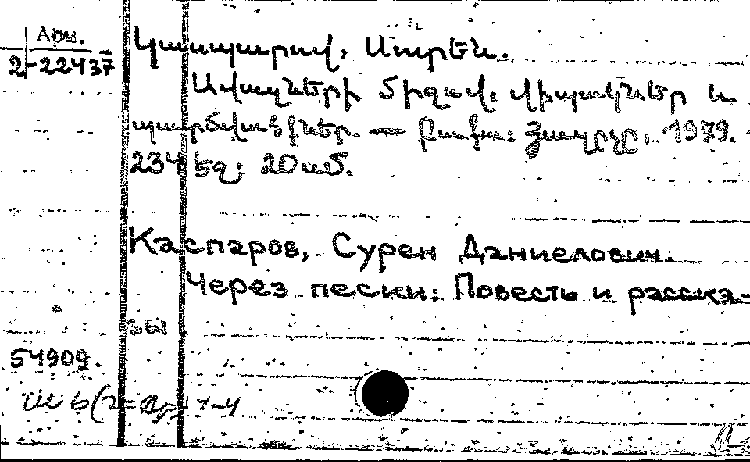 Арм.
2-22437
Կասպարով, Սուրեն.
Ավազների միջով: վիպակներ և
պատմվածքներ. — Բաքու: Յազըչը, 1979.
234 եզ; 20սմ.
Каспаров, Сурен Даниелович.
Через пески: Повесть и расска-
зы
54909.